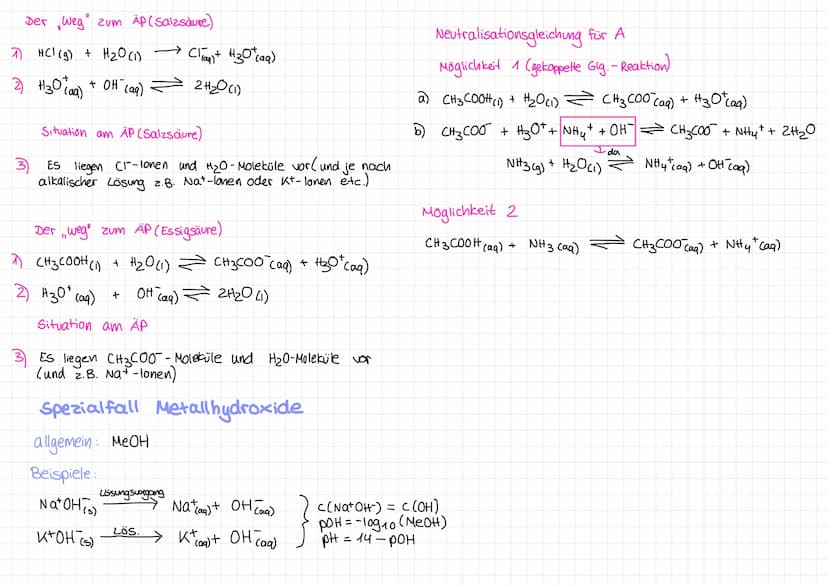 Der „Weg" zum ÄP (Salzsäure)
1) HCl (g) + H₂O (l) ⟶ Cl⁻(aq) + H₃O⁺(aq)
2) H₃O⁺(aq) + OH⁻(aq) ⇌ 2H₂O (l)
Situation am ÄP (Salzsäure)
3) Es liegen Cl⁻-Ionen und H₂O-Moleküle vor (und je nach
alkalischer Lösung z.B. Na⁺-Ionen oder K⁺-Ionen etc.)
Der „Weg" zum ÄP (Essigsäure)
1) CH₃COOH(l) + H₂O(l) ⇌ CH₃COO⁻(aq) + H₃O⁺(aq)
2) H₃O⁺(aq) + OH⁻(aq) ⇌ 2H₂O (l)
Situation am ÄP
3) Es liegen CH₃COO⁻-Moleküle und H₂O-Moleküle vor
(und z.B. Na⁺-Ionen)
Spezialfall Metallhydroxide
allgemein: MeOH
Beispiele:
Lösungsvorgang
Na⁺OH⁻(s) ⟶ Na⁺(aq) + OH⁻(aq)
Lös.
K⁺OH⁻(s) ⟶ K⁺(aq) + OH⁻(aq)
c(Na⁺OH⁻) = c(OH)
pOH = -log₁₀ (MeOH)
pH = 14 - pOH
Neutralisationsgleichung für A
Möglichkeit 1 (gekoppelte Glg.-Reaktion)
a) CH₃COOH(l) + H₂O(l) ⇌ CH₃COO⁻(aq) + H₃O⁺(aq)
b) CH₃COO⁻ + H₃O⁺ + NH₄⁺ + OH⁻ ⇌ CH₃COO⁻ + NH₄⁺ + 2H₂O
↓ da
NH₃(g) + H₂O(l) ⇌ NH₄⁺(aq) + OH⁻(aq)
Möglichkeit 2
CH₃COOH(aq) + NH₃(aq) ⇌ CH₃COO⁻(aq) + NH₄⁺(aq)